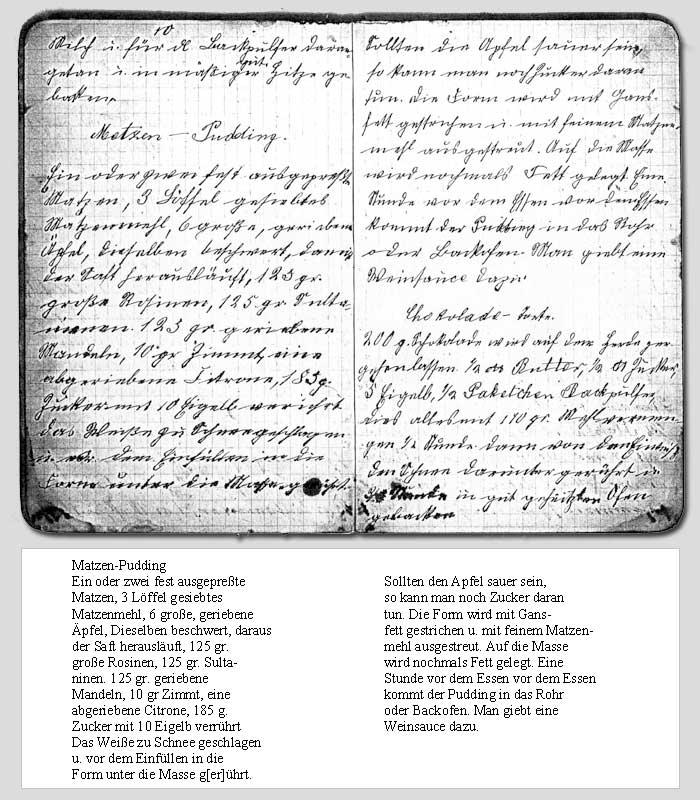 10
Milch u. für dl Backpulfer daran
getan u. in mäßiger Hitze ge-
backen.
Matzen-Pudding.
Ein oder zwei fest ausgepreßte
Matzen, 3 Löffel gesiebtes
Matzenmehl, 6 große, geriebene
Äpfel, dieselben beschwert, damit
der Saft herausläuft, 125 gr.
große Rosinen, 125 gr. Sulta-
ninen. 125 gr. geriebene
Mandeln, 10 gr Zimmt, eine
abgeriebene Citrone, 185 g.
Zucker mit 10 Eigelb verrührt
das Weiße zu Schnee geschlagen
u. vor dem Einfüllen in die
Form unter die Masse gerührt.
Sollten die Apfel sauer sein,
so kann man noch Zucker daran
tun. Die Form wird mit Gans-
fett gestrichen u. mit feinem Matzen-
mehl ausgestreut. Auf die Masse
wird nochmals Fett gelegt. Eine
Stunde vor dem Essen vor dem Essen
kommt der Pudding in das Rohr
oder Backofen. Man giebt eine
Weinsauce dazu.
Chokolade-Torte.
200 g. Schokolade wird auf dem Herde zer-
gehen lassen. 1/2 Butter, 1/2 Zucker,
5 Eigelb, 1/2 Paketchen Backpulfer,
dies alles mit 110 gr. Mehl vermen-
gen 1/2 Stunde. dann von den
den Schnee darunter gerührt u.
Stunde in gut geheitzten Ofen
gebacken
Matzen-Pudding
Ein oder zwei fest ausgepreßte
Matzen, 3 Löffel gesiebtes
Matzenmehl, 6 große, geriebene
Äpfel, Dieselben beschwert, daraus
der Saft herausläuft, 125 gr.
große Rosinen, 125 gr. Sulta-
ninen. 125 gr. geriebene
Mandeln, 10 gr Zimmt, eine
abgeriebene Citrone, 185 g.
Zucker mit 10 Eigelb verrührt
Das Weiße zu Schnee geschlagen
u. vor dem Einfüllen in die
Form unter die Masse g[er]ührt.
Sollten den Apfel sauer sein,
so kann man noch Zucker daran
tun. Die Form wird mit Gans-
fett gestrichen u. mit feinem Matzen-
mehl ausgestreut. Auf die Masse
wird nochmals Fett gelegt. Eine
Stunde vor dem Essen vor dem Essen
kommt der Pudding in das Rohr
oder Backofen. Man giebt eine
Weinsauce dazu.